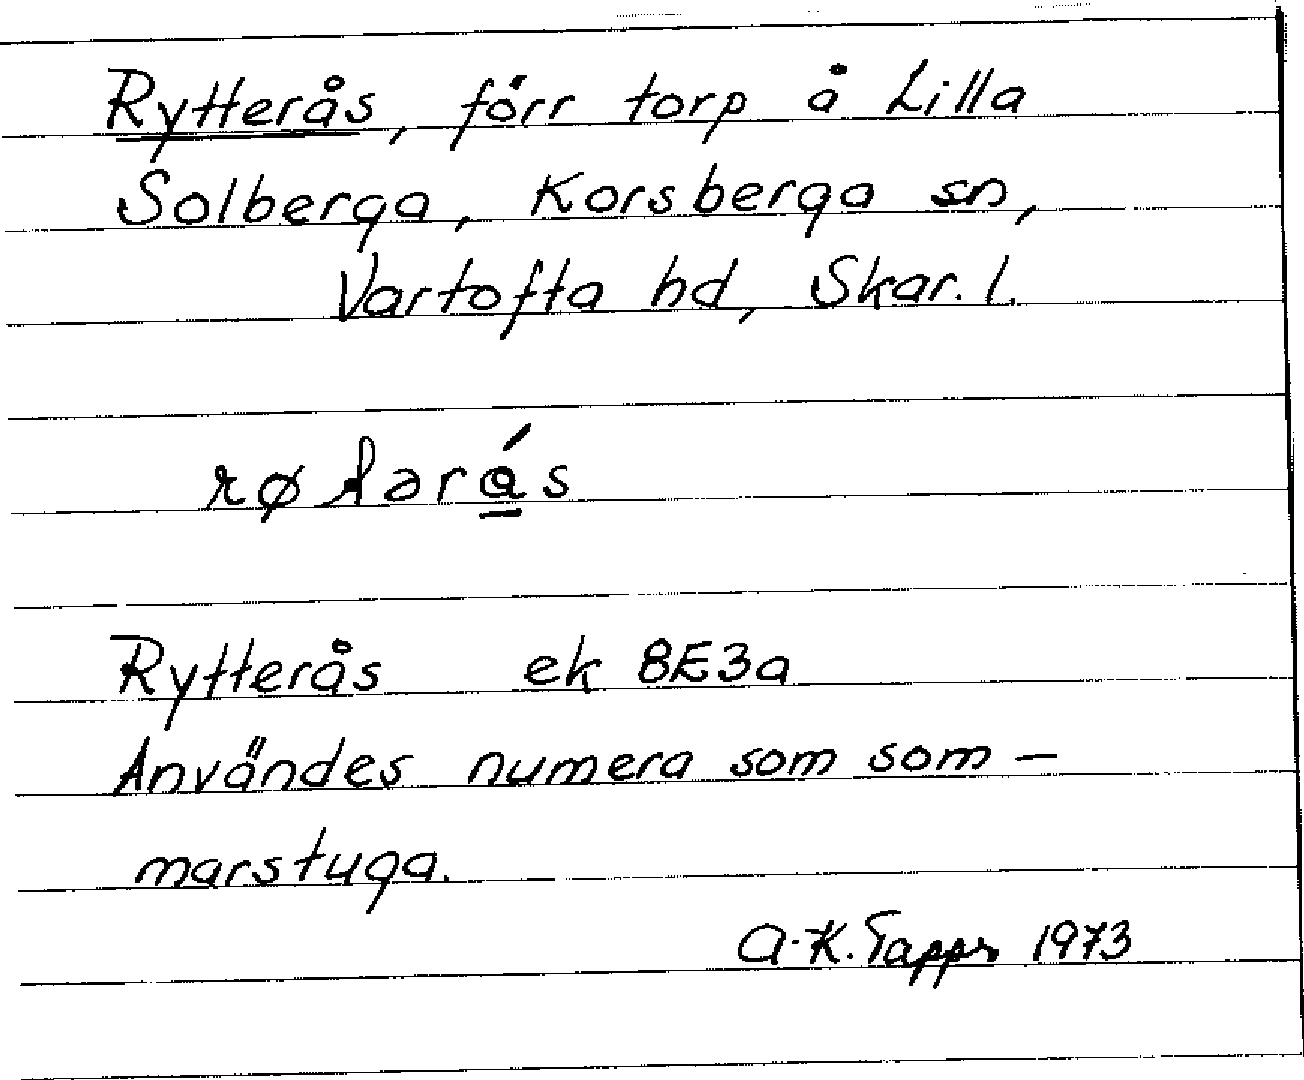 Rytterås, förr torp å Lilla
Solberga, Korsberga sn,
Vartofta hd, Skar. l.
Rytterås ek 8E3a
Användes numera som som-
marstuga.
A-K. 1973